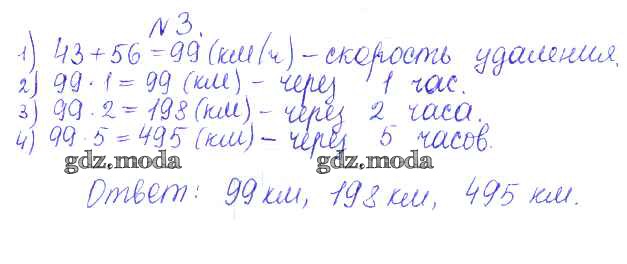 N 3.
1) 43 + 56 = 99 (км/ч) – скорость удаления.
2) 99 · 1 = 99 (км) – через 1 час.
3) 99 · 2 = 198 (км) – через 2 часа.
4) 99 · 5 = 495 (км) – через 5 часов.
gdz.moda gdz.moda
Ответ: 99 км, 198 км, 495 км.